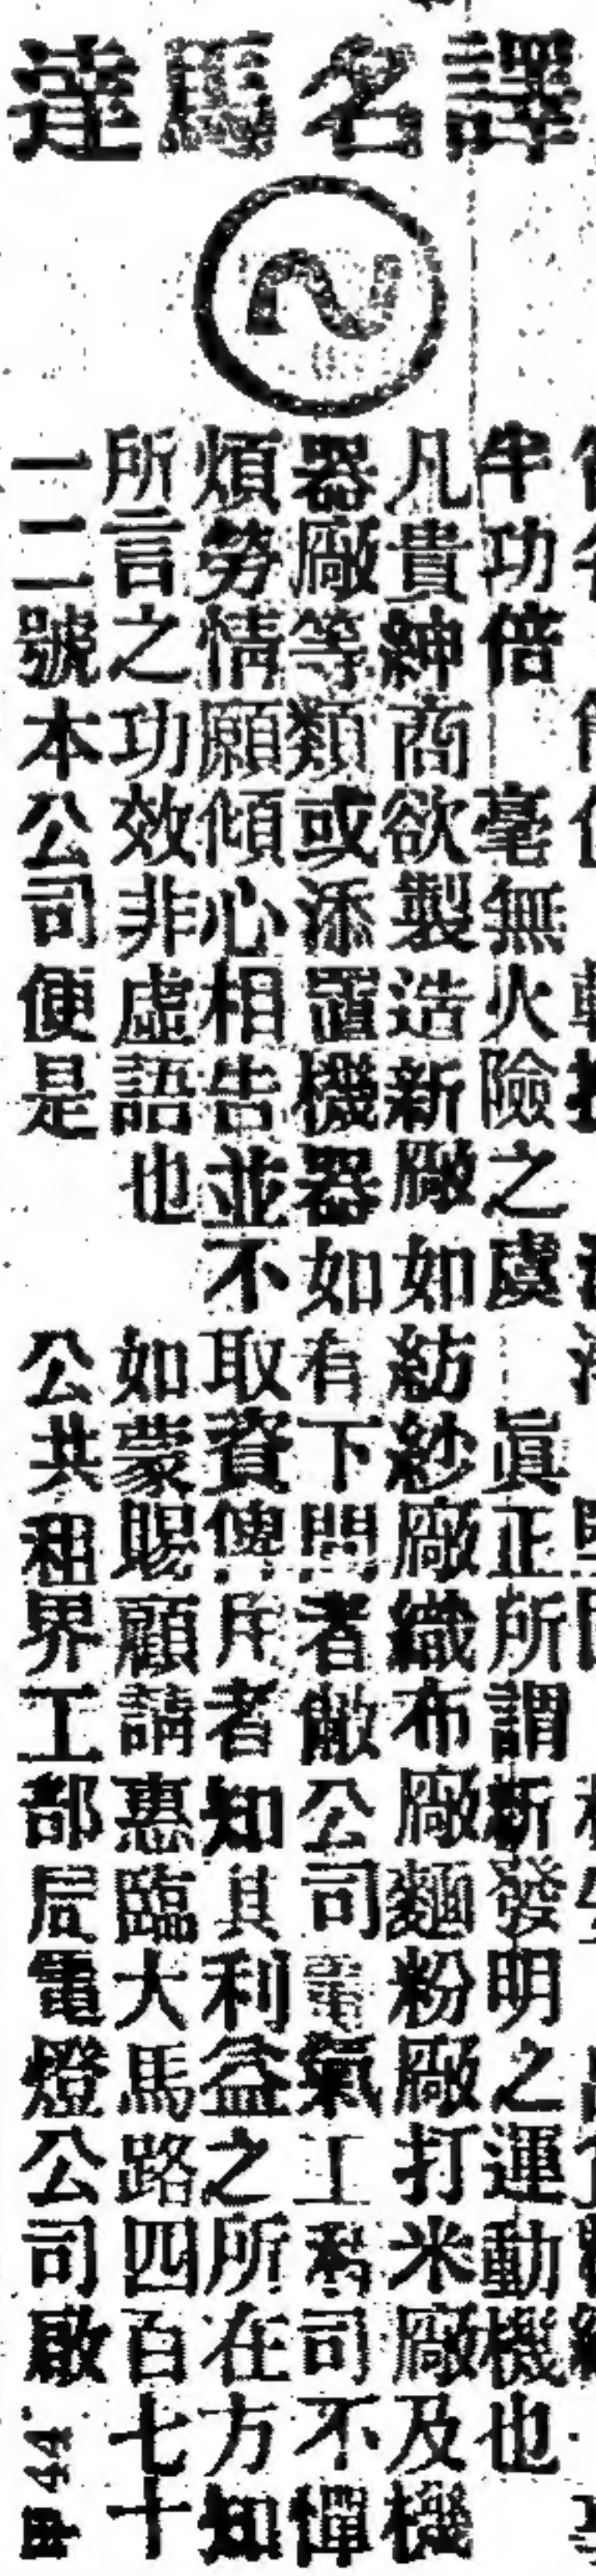 譯名馬達
半功倍 毫無火險之虞 眞正所謂新發明之運動機也
凡貴紳商欲製造新廠如紡紗廠織布廠麵粉廠打米廠及機
器廠等類或添置機器如有下問者敝公司電氣工程司不憚
煩勞情願傾心相告並不取資俾斥者知其利益之所在方知
所言之功效非虛語也 如蒙賜顧請惠臨大馬路四百七十
一二號本公司便是 公共租界工部局電燈公司啟
甲44